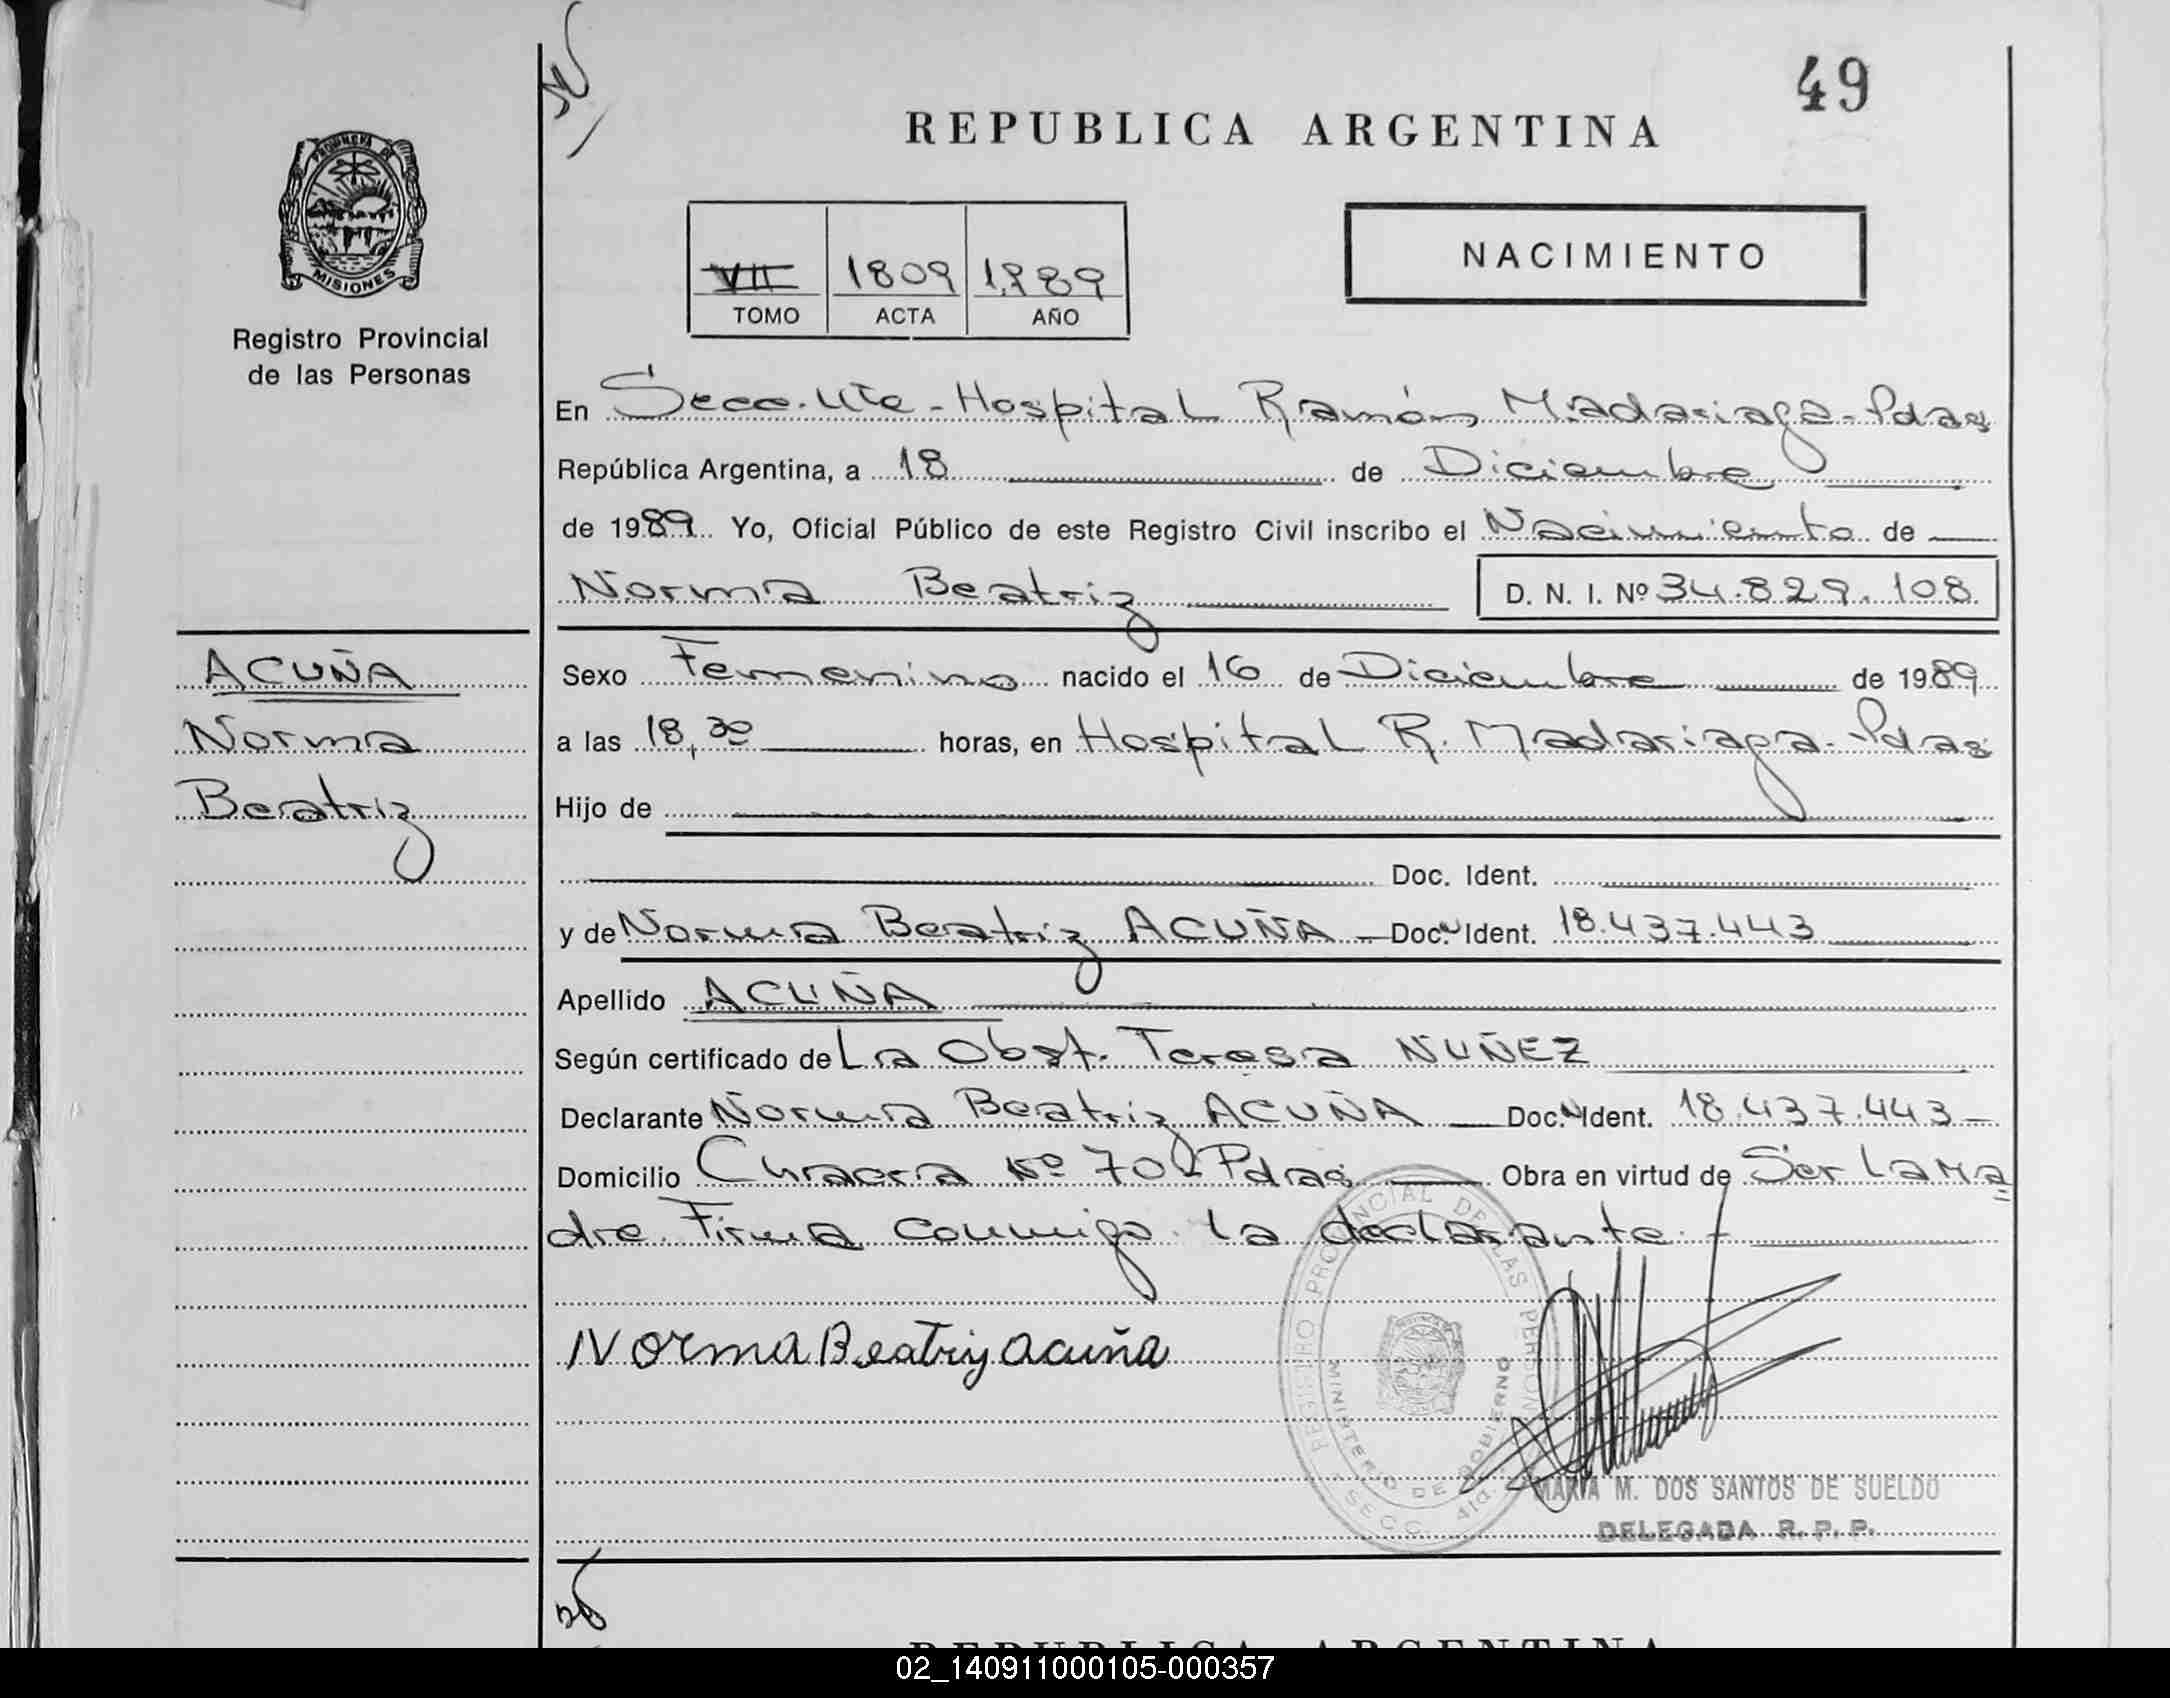 49
REPUBLICA ARGENTINA
PROVINCIA DE MISIONES
Registro Provincial
de las Personas
VII 1809 1989
TOMO ACTA AÑO
NACIMIENTO
En Secc. 4ta - Hospital Ramón Madariaga - Pdas
República Argentina, a 18 de Diciembre
de 1989 Yo, Oficial Público de este Registro Civil inscribo el Nacimiento de
Norma Beatriz D. N. I. Nº 34.829.108
ACUÑA
Norma
Beatriz
Sexo Femenino nacido el 16 de Diciembre de 1989
a las 18,30 horas, en Hospital R. Madariaga - Pdas
Hijo de
Doc. Ident.
y de Norma Beatriz ACUÑA - Doc. Ident. 18.437.443
Apellido ACUÑA
Según certificado de La Obst. Teresa NUÑEZ
Declarante Norma Beatriz ACUÑA - Doc. Ident. 18.437.443 -
Domicilio Chacra Nº 70 - Pdas Obra en virtud de Ser La Ma
dre. Firma conmigo la declarante. -
Norma Beatriz Acuña
REGISTRO PROVINCIAL DE LAS PERSONAS
MINISTERIO DE GOBIERNO
SECC. 4ta.
MARIA M. DOS SANTOS DE SUELDO
DELEGADA R. P. P.
REPUBLICA ARGENTINA
02_140911000105-000357